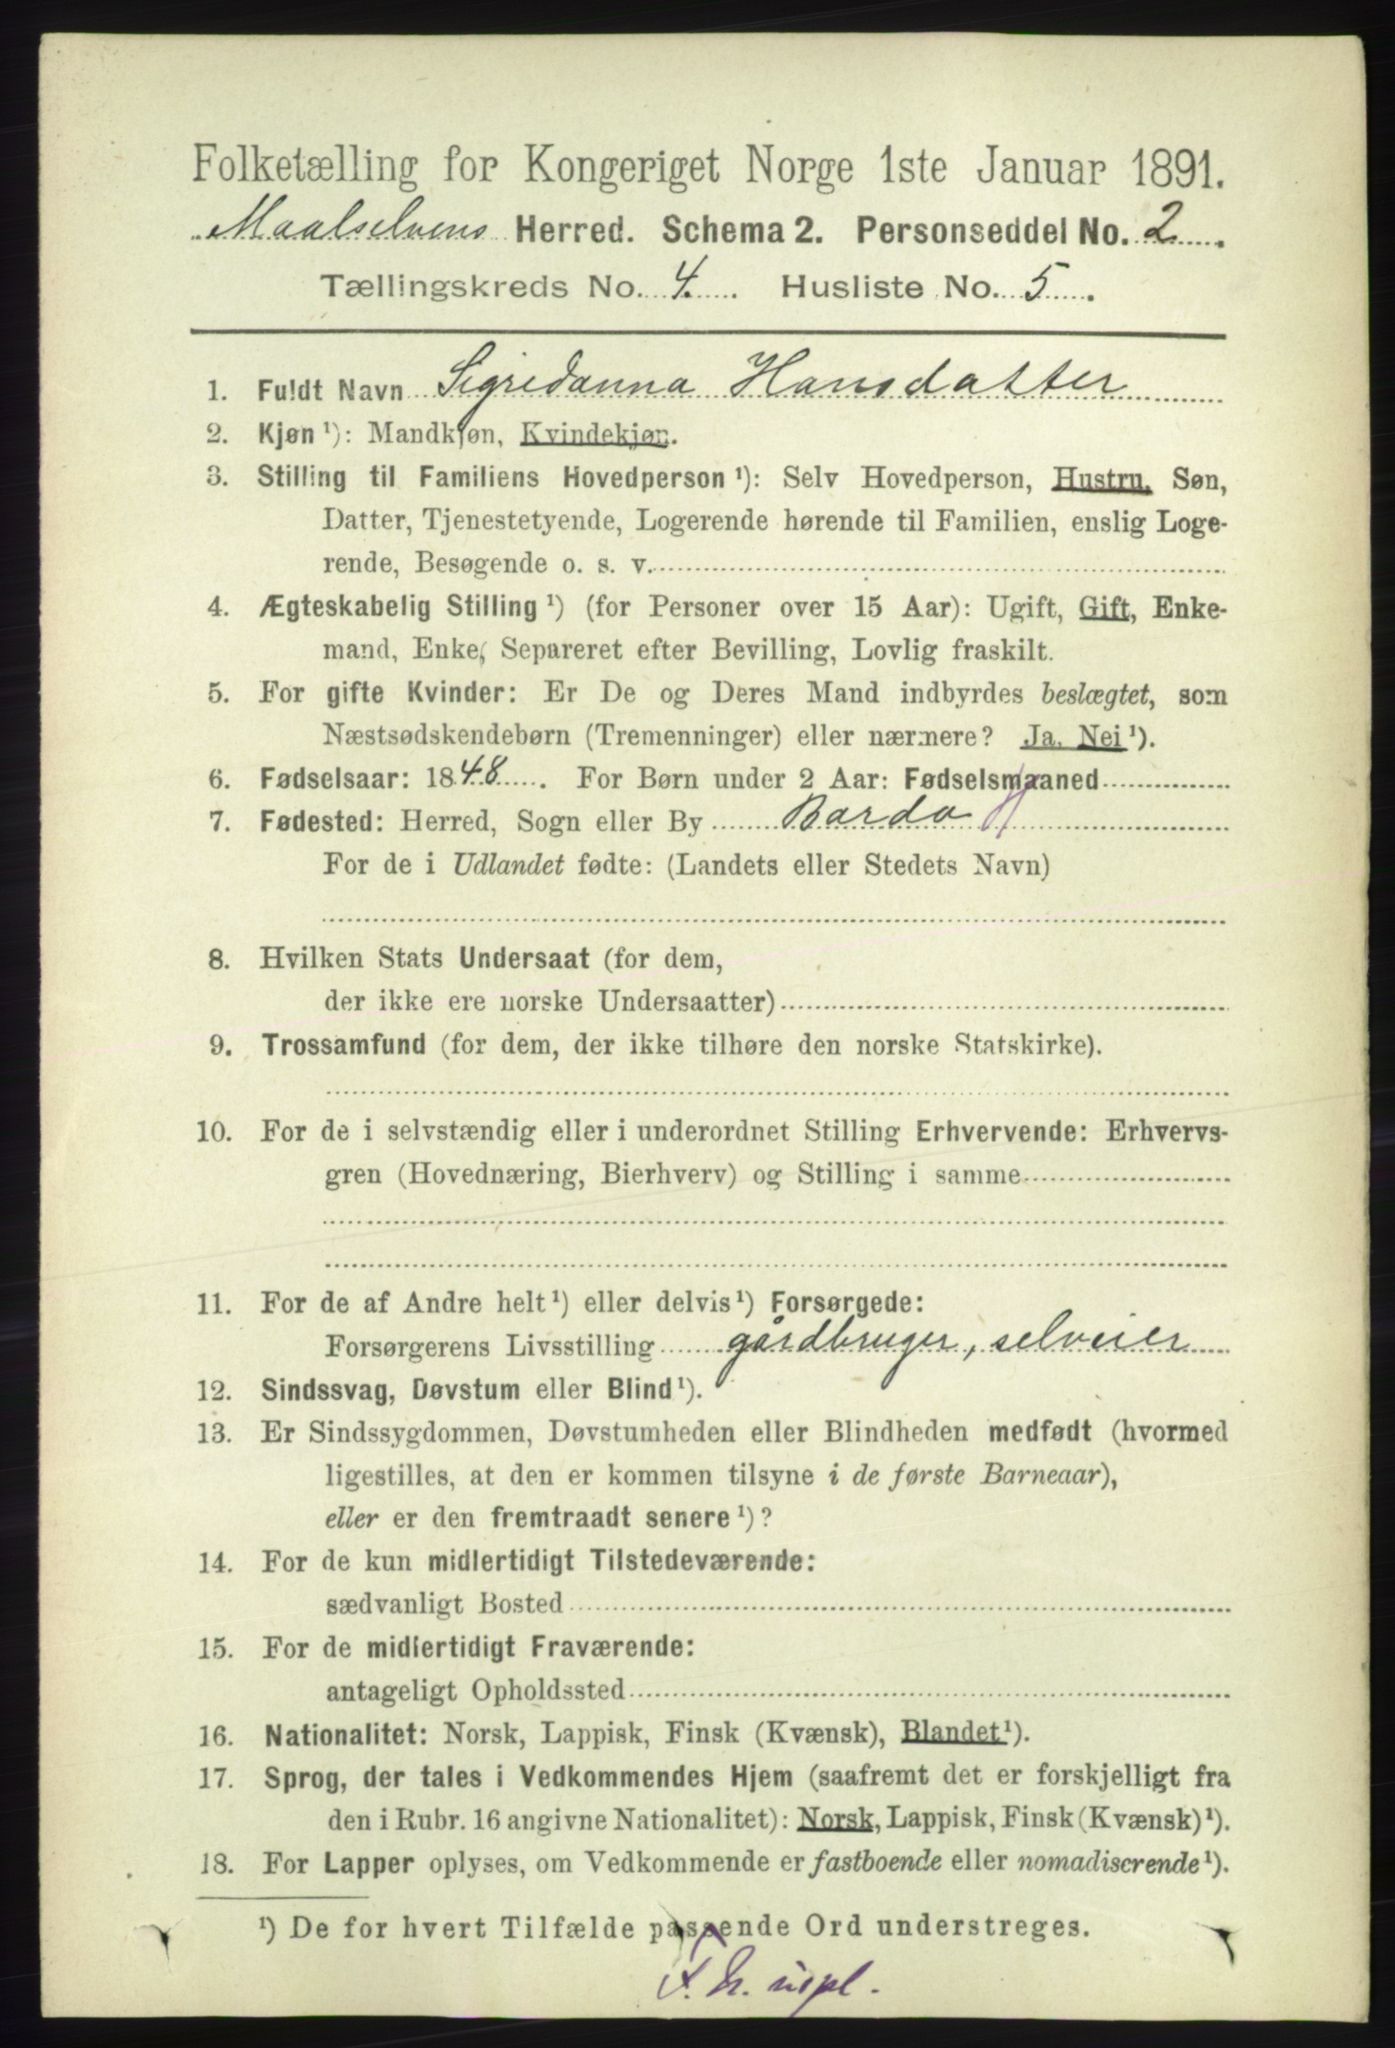 Folketælling for Kongeriget Norge 1ste Januar 1891.
Maalselvens Herred. Schema 2. Personseddel No. 2.
Tællingskreds No. 4. Husliste No. 5.
1. Fuldt Navn Sigredanna Hansdatter
2. Kjøn¹): Mandkjøn, Kvindekjøn.
3. Stilling til Familiens Hovedperson¹): Selv Hovedperson, Hustru, Søn,
Datter, Tjenestetyende, Logerende hørende til Familien, enslig Loge-
rende, Besøgende o. s. v.
4. Ægteskabelig Stilling¹) (for Personer over 15 Aar): Ugift, Gift, Enke-
mand, Enke, Separeret efter Bevilling, Lovlig fraskilt.
5. For gifte Kvinder: Er De og Deres Mand indbyrdes beslægtet, som
Næstsødskendebørn (Tremenninger) eller nærmere? Ja, Nei¹).
6. Fødselsaar: 1848. For Børn under 2 Aar: Fødselsmaaned
7. Fødested: Herred, Sogn eller By Bardo H
For de i Udlandet fødte: (Landets eller Stedets Navn)
8. Hvilken Stats Undersaat (for dem,
der ikke ere norske Undersaatter)
9. Trossamfund (for dem, der ikke tilhøre den norske Statskirke).
10. For de i selvstændig eller i underordnet Stilling Erhvervende: Erhvervs-
gren (Hovednæring, Bierhverv) og Stilling i samme
11. For de af Andre helt¹) eller delvis¹) Forsørgede:
Forsørgerens Livsstilling gårdbruger, selveier
12. Sindssvag, Døvstum eller Blind¹).
13. Er Sindssygdommen, Døvstumheden eller Blindheden medfødt (hvormed
ligestilles, at den er kommen tilsyne i de første Barneaar),
eller er den fremtraadt senere¹)?
14. For de kun midlertidigt Tilstedeværende:
sædvanligt Bosted
15. For de midlertidigt Fraværende:
antageligt Opholdssted
16. Nationalitet: Norsk, Lappisk, Finsk (Kvænsk), Blandet¹).
17. Sprog, der tales i Vedkommendes Hjem (saafremt det er forskjelligt fra
den i Rubr. 16 angivne Nationalitet): Norsk, Lappisk, Finsk (Kvænsk)¹).
18. For Lapper oplyses, om Vedkommende er fastboende eller nomadiserende¹).
¹) De for hvert Tilfælde passende Ord understreges.